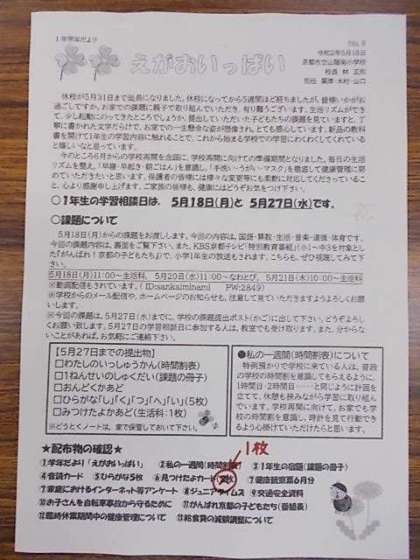 1年学年だより
No.6
令和2年5月18日
京都市立山階南小学校
校長 林 正則
えがおいっぱい
休校が5月31日まで延長になりました。休校になってから5週間ほど経ちましたが、皆様いかがお
過ごしですか。お家での課題に親子で取り組んでいただき、有り難うございます。生活リズムができ
て、少し軌道にのってきたところでしょうか。提出していただいた子どもたちの課題を見ていますと、丁
寧に書かれた文字だらけで、お家での一生懸命な姿が想像され、とても感心しています。新品の教科
書を開けて1年生の学習内容に触れることで、これから始まる学校での学習にわくわくしてくれている
と嬉しいなと思っています。
今のところ6月からの学校再開を念頭に、学校再開に向けての準備期間となりました。毎日の生活
リズムを整え、「早寝・早起き・朝ごはん」を意識し、「手洗い・うがい・マスク」を徹底して健康管理に努
めていただきたいと思います。保護者の皆様には様々な変更等にも柔軟に対応してくださっているこ
と、心より感謝申し上げます。ご家族の皆様も、健康にはどうぞお気をつけ下さい。
○1年生の学習相談日は、5月18日(月)と5月27日(水)です。
○課題について
5月18日(月)からの課題をお渡しします。今回の内容は、国語・算数・生活・音楽・道徳・体育です。
今回の課題内容は、裏面をご覧下さい。また、KBS京都テレビ「特別教育番組」(小1～中3を対象とし
た「がんばれ!京都の子どもたち」)で、小学1年生の放送もされます。こちらも、ぜひ視聴してみて下
さい。
5月18日(月)11:00～生活科、 5月20日(水)11:00～なわとび、 5月21日(木)10:00～生活科
※動画配信もされています。(ID:sankaiminami PW:2849)
※学校からのメール配信や、ホームページのお知らせも、注意して見ていただきますようよろしくお願
いします。
※今回の課題は、5月27日までに、学校の課題提出ポスト(かご)に出して下さい。どうぞよろし
くお願い致します。5月27日の学習相談日に参加する人は、教室でも受け取ります。また、分からな
いことがあれば、お気軽にご連絡下さい。
【5月27日までの提出物】
□わたしのいっしゅうかん(時間割表)
□1ねんせいのしゅくだい(課題の冊子)
□おんどくかあど
□ひらがな「し」「く」「つ」「へ」「い」(5枚)
□みつけたよかあど(生活科:1枚)
※どうとくノートは、家で保管しておいて下さい。
●私の一週間(時間割表)について
特例預かりで学校に来ている人は、普段
の学校の時間割を意識してもらえるように、
1時間目・2時間目……と同じように計画を
立てて、休憩も挟みながら学習に取り組ん
でいます。学校再開に向けて、お家でも学
校の時間割を意識し、時計を見て行動でき
るよう心掛けていただけらたらと思います。
★配布物の確認★
1枚
①学年だより「えがおいっぱい」 ②私の一週間(時間割表) ③1年生の宿題(課題の冊子)
④音読カード ⑤ひらがな5枚 ⑥見つけたよカード ⑦健康観察票6月分
⑦家庭におけるインターネット等アンケート ⑧ジュニアタイムス ⑨交通安全資料
⑩お子さんを自転車事故から守るために ⑪がんばれ京都の子どもたち(番組表)
⑫臨時休業期間中の健康管理について ⑬給食費の減額調整について